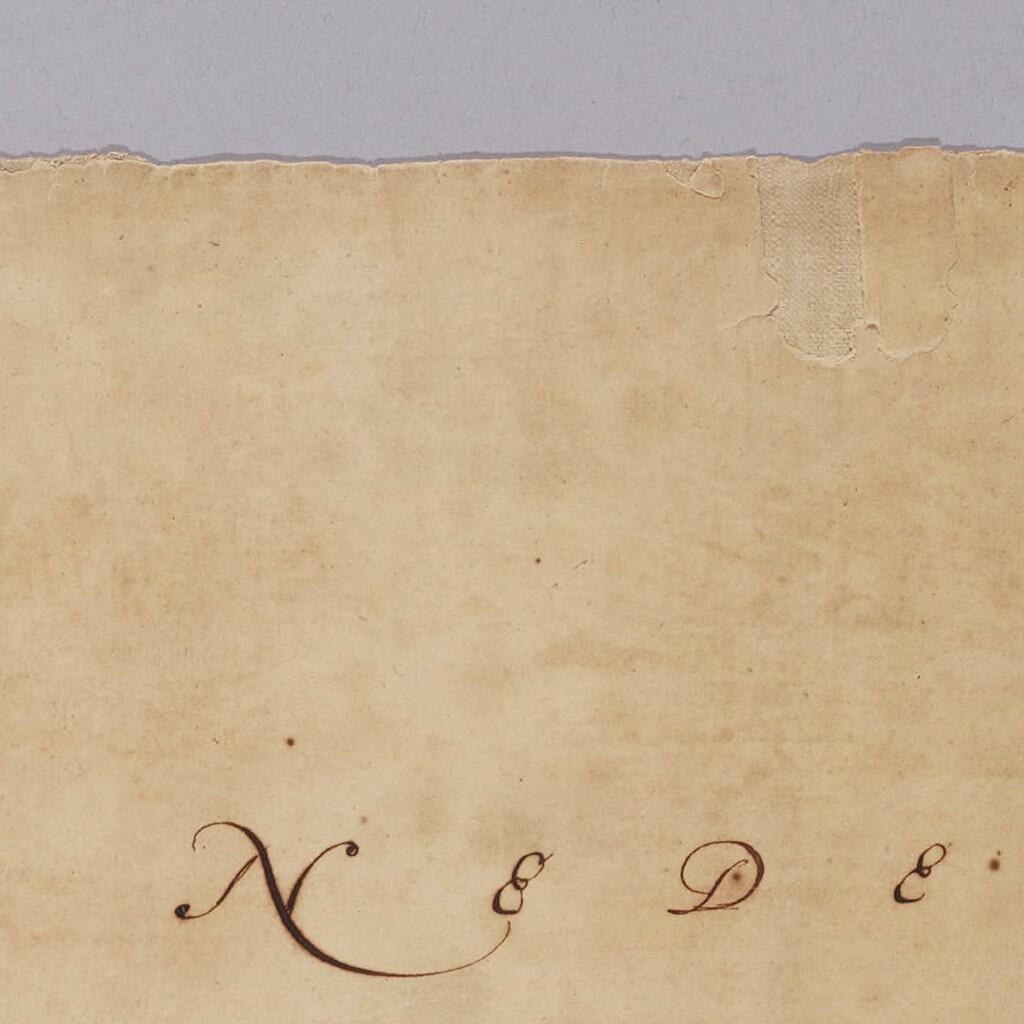 N E D E